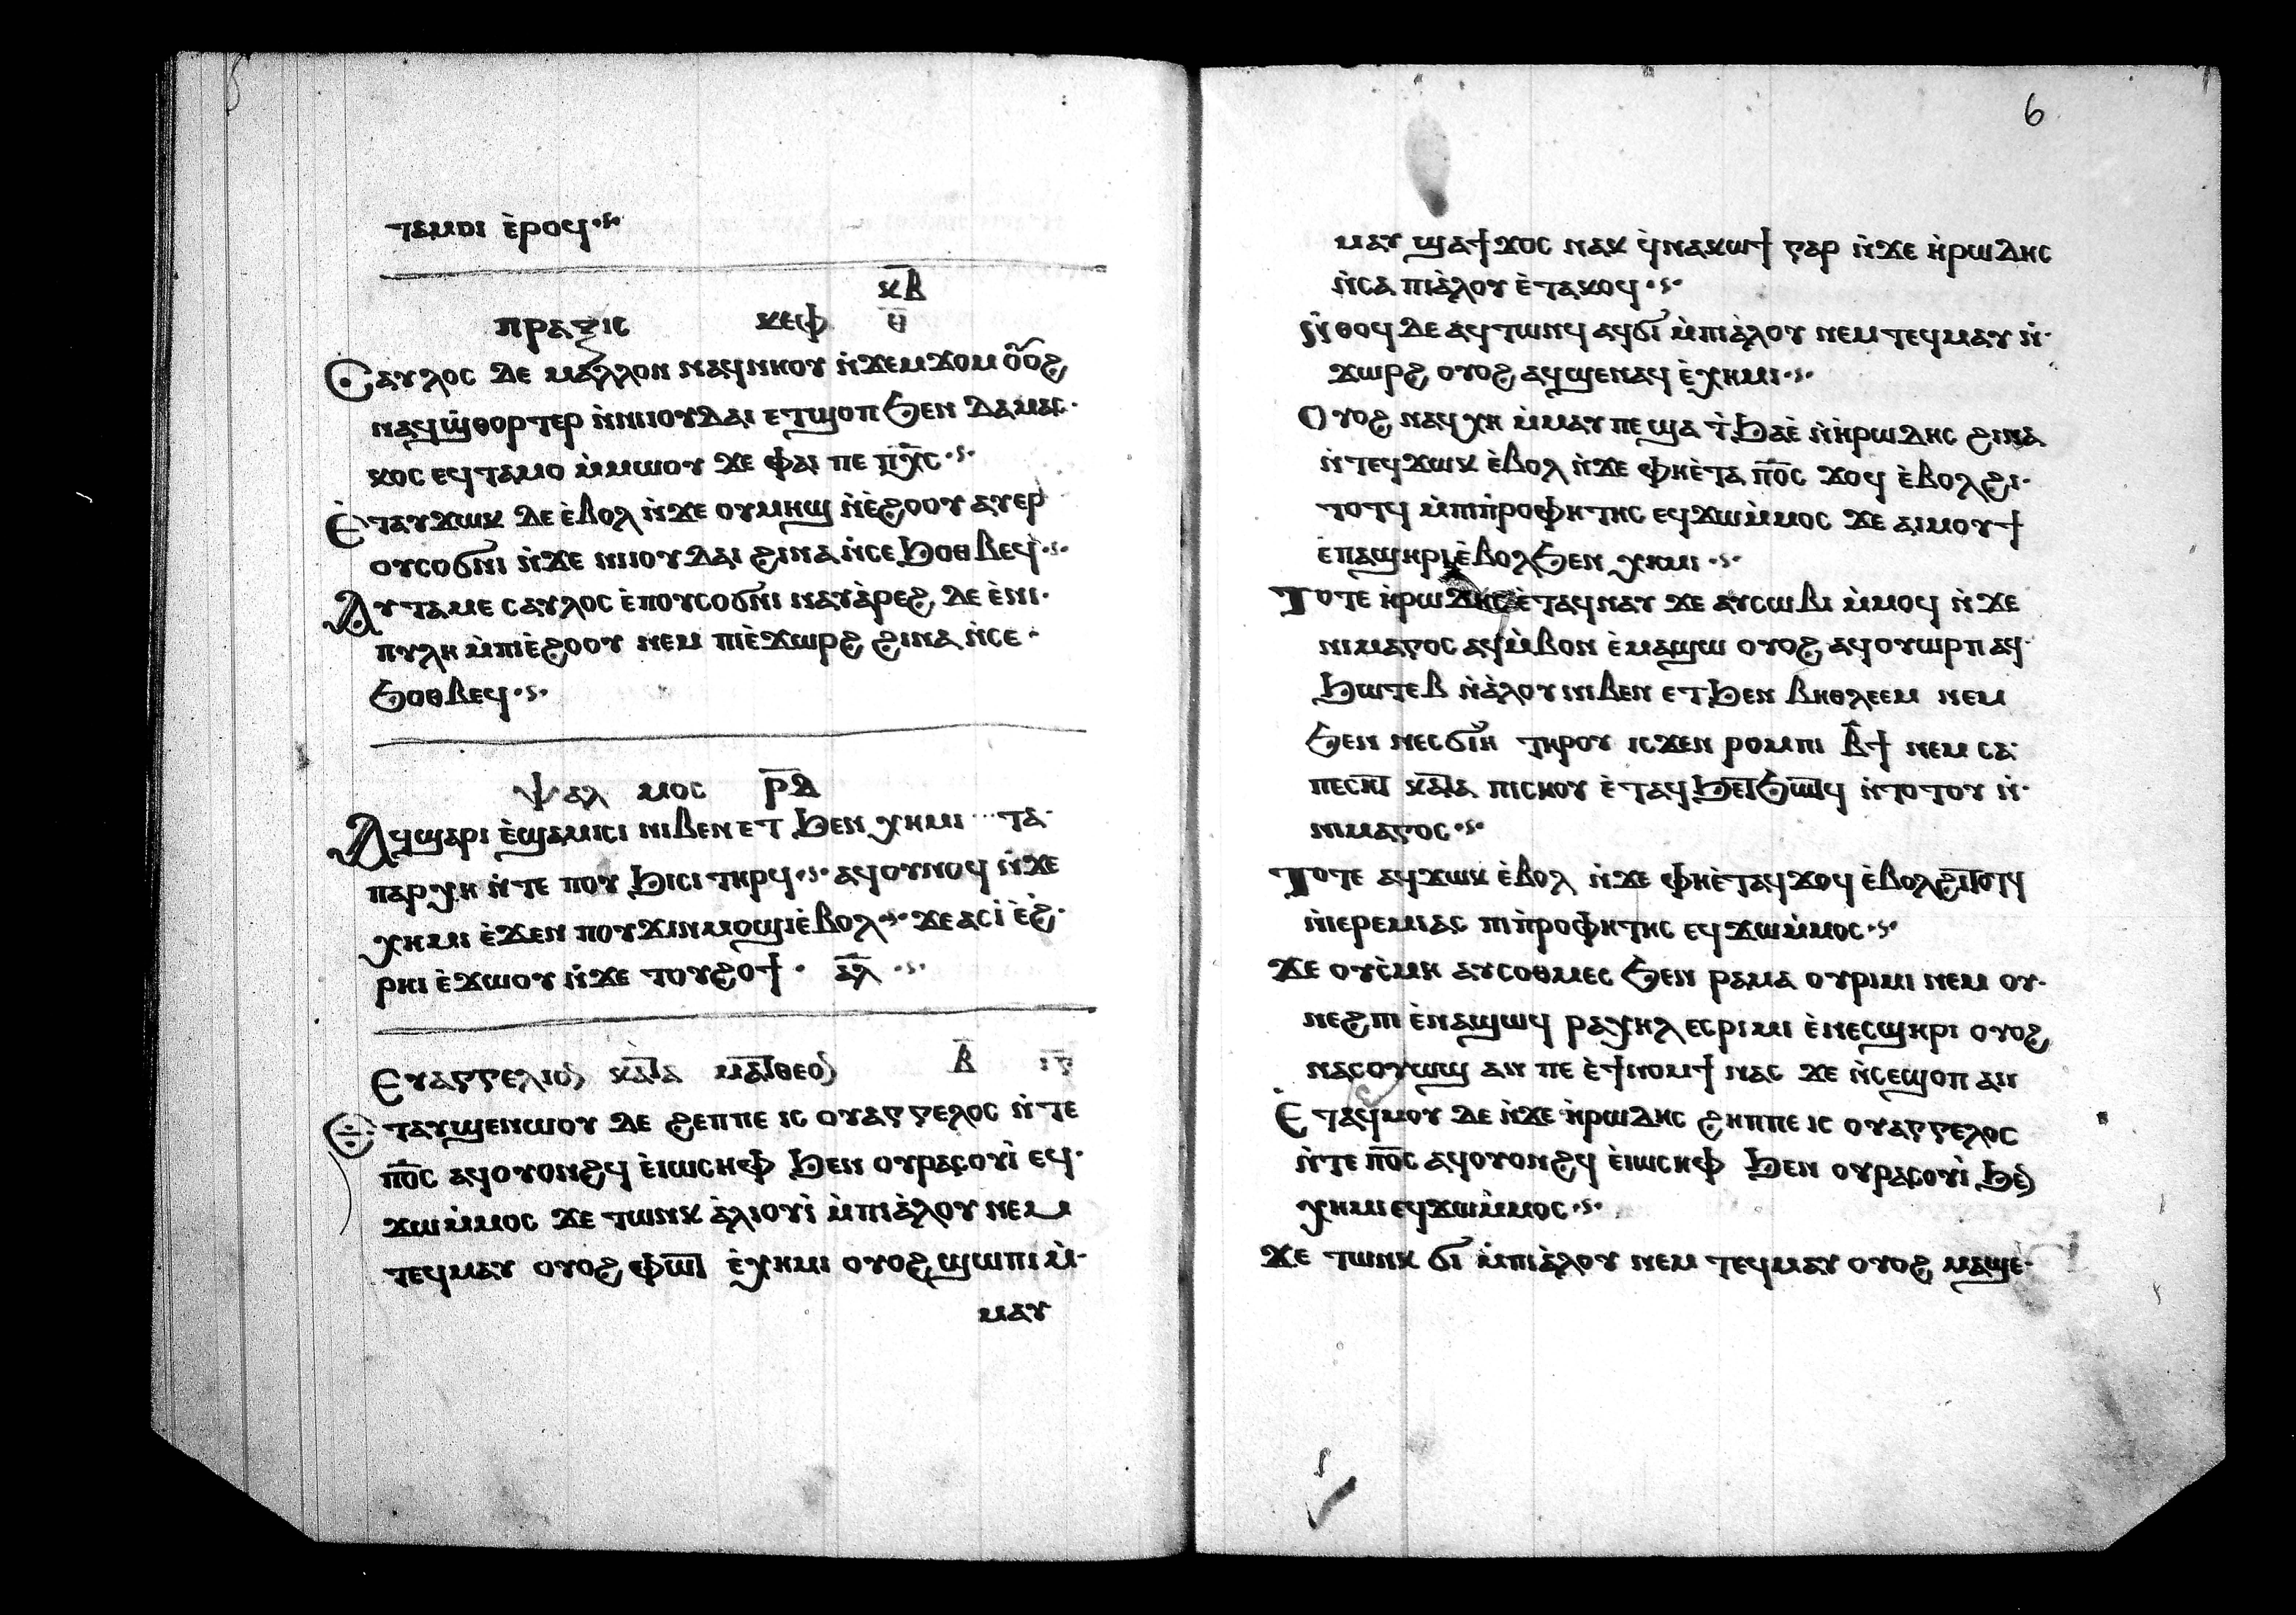 ⲧⲁⲙⲟⲓ ⲉ̀ⲣⲟϥ
ⲕⲃ̅
ⲡⲣⲁⲝⲓⲥ ⲕⲉⲫ ⲑ̅
Ⲥⲁⲩⲗⲟⲥ ⲇⲉ ⲙⲁⲗⲗⲟⲛ ⲛⲁϥⲛⲏⲟⲩ ⲛ̀ϫⲉⲙϫⲟⲙ ⲟⲩⲟϩ
ⲛⲁϥϣ̀ⲑⲟⲣⲧⲉⲣ ⲛ̀ⲛⲓⲓⲟⲩⲇⲁⲓ ⲉⲧϣⲟⲡ ϧⲉⲛ ⲇⲁⲙⲁⲥ
ⲕⲟⲥ ⲉϥⲧⲁⲙⲟ ⲙ̀ⲙⲱⲟⲩ ϫⲉ ⲫⲁⲓ ⲡⲉ ⲡⲭ̅ⲥ
Ⲉ̀ⲧⲁⲩϫⲱⲕ ⲇⲉ ⲉ̀ⲃⲟⲗ ⲛ̀ϫⲉ ⲟⲩⲙⲏϣ ⲛ̀ⲉ̀ϩⲟⲟⲩ ⲁⲩⲉⲣ
ⲟⲩⲥⲟϭⲛⲓ ⲛ̀ϫⲉ ⲛⲓⲓⲟⲩⲇⲁⲓ ϩⲓⲛⲁ ⲛ̀ⲥⲉϧⲟⲑⲃⲉϥ
Ⲁⲩⲧⲁⲙⲉ ⲥⲁⲩⲗⲟⲥ ⲉ̀ⲡⲟⲩⲥⲟϭⲛⲓ ⲛⲁⲩⲁ̀ⲣⲉϩ ⲇⲉ ⲉ̀ⲛⲓ
ⲡⲩⲗⲏ ⲙ̀ⲡⲓⲉ̀ϩⲟⲟⲩ ⲛⲉⲙ ⲡⲓⲉ̀ϫⲱⲣϩ ϩⲓⲛⲁ ⲛ̀ⲥⲉ
ϧⲟⲑⲃⲉϥ
ⲯⲁⲗ ⲙⲟⲥ ⲣ̅ⲇ̅
Ⲁϥϣⲁⲣⲓ ⲉ̀ϣⲁⲙⲓⲥⲓ ⲛⲓⲃⲉⲛ ⲉⲧ ϧⲉⲛ ⲭⲏⲙⲓ ⲧⲁ
ⲡⲁⲣⲭⲏ ⲛ̀ⲧⲉ ⲡⲟⲩϧⲓⲥⲓ ⲧⲏⲣϥ ⲁϥⲟⲩⲛⲟϥ ⲛ̀ϫⲉ
ⲭⲏⲙⲓ ⲉ̀ϫⲉⲛ ⲡⲟⲩϫⲓⲛⲙⲟϣⲓ ⲉ̀ⲃⲟⲗ ϫⲉ ⲁⲥⲓ̀ ⲉ̀ϩ̀
ⲣⲏⲓ ⲉ̀ϫⲱⲟⲩ ⲛ̀ϫⲉ ⲧⲟⲩϩⲟϯ ⲁ̅ⲗ̅
Ⲉⲩⲁⲅⲅⲉⲗⲓⲟⲛ ⲕⲁⲧⲁ ⲙⲁⲧⲑⲉⲟⲛ ⲃ̅ ⲓ̅ⲅ̅
Ⲉⲧⲁⲩϣⲉⲛⲱⲟⲩ ⲇⲉ ϩⲉⲡⲡⲉ ⲓⲥ ⲟⲩⲁⲅⲅⲉⲗⲟⲥ ⲛ̀ⲧⲉ
ⲡⲟ̅ⲥ ⲁϥⲟⲩⲟⲛϩϥ ⲉ̀ⲓⲱⲥⲏⲫ ϧⲉⲛ ⲟⲩⲣⲁⲥⲟⲩⲓ̀ ⲉϥ
ϫⲱⲙ̀ⲙⲟⲥ ϫⲉ ⲧⲱⲛⲕ ⲁ̀ⲗⲓⲟⲩⲓ̀ ⲙ̀ⲡⲓⲁ̀ⲗⲟⲩ ⲛⲉⲙ
ⲧⲉϥⲙⲁⲩ ⲟⲩⲟϩ ⲫⲱⲧ ⲉ̀ⲭⲏⲙⲓ ⲟⲩⲟϩ ϣⲱⲡⲓ ⲙ̀
ⲙⲁⲩ
6
ⲙⲁⲩ ϣⲁϯϫⲟⲥ ⲛⲁⲕ ϥ̀ⲛⲁⲕⲱϯ ⲅⲁⲣ ⲛ̀ϫⲉ ⲏ̀ⲣⲱⲇⲏⲥ
ⲛ̀ⲥⲁ ⲡⲓⲁ̀ⲗⲟⲩ ⲉ̀ⲧⲁⲕⲟϥ
ⲛ̀ⲑⲟϥ ⲇⲉ ⲁϥⲧⲱⲛϥ ⲁϥϭⲓ ⲙ̀ⲡⲓⲁ̀ⲗⲟⲩ ⲛⲉⲙ ⲧⲉϥⲙⲁⲩ ⲛ̀
ϫⲱⲣϩ ⲟⲩⲟϩ ⲁϥϣⲉⲛⲁϥ ⲉ̀ⲭⲏⲙⲓ
Ⲟⲩⲟϩ ⲛⲁϥⲭⲏ ⲙ̀ⲙⲁⲩ ⲡⲉ ϣⲁ ⲧ̀ϧⲁⲉ̀ ⲛ̀ⲏⲣⲱⲇⲏⲥ ϩⲓⲛⲁ
ⲛ̀ⲧⲉϥϫⲱⲕ ⲉ̀ⲃⲟⲗ ⲛ̀ϫⲉ ⲫⲏⲉ̀ⲧⲁ ⲡⲟ̅ⲥ ϫⲟϥ ⲉ̀ⲃⲟⲗϩⲓ
ⲧⲟⲧϥ ⲙ̀ⲡⲓⲡ̀ⲣⲟⲫⲏⲧⲏⲥ ⲉϥϫⲱⲙ̀ⲙⲟⲥ ϫⲉ ⲁⲓⲙⲟⲩϯ
ⲉ̀ⲡⲁϣⲏⲣⲓ ⲉ̀ⲃⲟⲗϧⲉⲛ ⲭⲏⲙⲓ
Ⲧⲟⲧⲉ ⲏ̀ⲣⲱⲇⲏⲥ ⲉ̀ⲧⲁϥⲛⲁⲩ ϫⲉ ⲁⲩⲥⲱⲃⲓ ⲙ̀ⲙⲟϥ ⲛ̀ϫⲉ
ⲛⲓⲙⲁⲅⲟⲥ ⲁϥⲙ̀ⲃⲟⲛ ⲉ̀ⲙⲁϣⲱ ⲟⲩⲟϩ ⲁϥⲟⲩⲱⲣⲡ ⲁϥ
ϧⲱⲧⲉⲃ ⲛ̀ⲁ̀ⲗⲟⲩ ⲛⲓⲃⲉⲛ ⲉⲧϧⲉⲛ ⲃⲏⲑⲗⲉⲉⲙ ⲛⲉⲙ
ϧⲉⲛ ⲛⲉⲥϭⲓⲏ ⲧⲏⲣⲟⲩ ⲓⲥϫⲉⲛ ⲣⲟⲙⲡⲓ ⲃ̅ϯ ⲛⲉⲙ ⲥⲁ
ⲡⲉⲥⲏⲧ ⲕⲁⲧⲁ ⲡⲓⲥⲏⲟⲩ ⲉ̀ⲧⲁϥϧⲉⲧϧⲱⲧϥ ⲛ̀ⲧⲟⲧⲟⲩ ⲛ̀
ⲛⲓⲙⲁⲅⲟⲥ
Ⲧⲟⲧⲉ ⲁϥϫⲱⲕ ⲉ̀ⲃⲟⲗ ⲛ̀ϫⲉ ⲫⲏⲉ̀ⲧⲁϥϫⲟϥ ⲉ̀ⲃⲟⲗϩⲓⲧⲟⲧϥ
ⲛ̀ⲓⲉⲣⲉⲙⲓⲁⲥ ⲡⲓⲡ̀ⲣⲟⲫⲏⲧⲏⲥ ⲉϥϫⲱⲙ̀ⲙⲟⲥ
ϫⲉ ⲟⲩⲥ̀ⲙⲏ ⲁⲩⲥⲟⲑⲙⲉⲥ ϧⲉⲛ ⲣⲁⲙⲁ ⲟⲩⲣⲓⲙⲓ ⲛⲉⲙ ⲟⲩ
ⲛⲉϩⲡⲓ ⲉ̀ⲛⲁϣⲱϥ ⲣⲁⲭⲏⲗ ⲉⲥⲣⲓⲙⲓ ⲉ̀ⲛⲉⲥϣⲏⲣⲓ ⲟⲩⲟϩ
ⲛⲁⲥⲟⲩⲱϣ ⲁⲛ ⲡⲉ ⲉ̀ϯⲛⲟⲙϯ ⲛⲁⲥ ϫⲉ ⲛ̀ⲥⲉϣⲟⲡ ⲁⲛ
Ⲉ̀ⲧⲁϥⲙⲟⲩ ⲇⲉ ⲛ̀ϫⲉ ⲏ̀ⲣⲱⲇⲏⲥ ϩⲏⲡⲡⲉ ⲓⲥ ⲟⲩⲁⲅⲅⲉⲗⲟⲥ
ⲛ̀ⲧⲉ ⲡⲟ̅ⲥ ⲁϥⲟⲩⲟⲛϩϥ ⲉ̀ⲓⲱⲥⲏⲫ ϧⲉⲛ ⲟⲩⲣⲁⲥⲟⲩⲓ̀ ϧⲉⲛ
ⲭⲏⲙⲓ ⲉϥϫⲱⲙ̀ⲙⲟⲥ
ϫⲉ ⲧⲱⲛⲕ ϭⲓ ⲙ̀ⲡⲓⲁ̀ⲗⲟⲩ ⲛⲉⲙ ⲧⲉϥⲙⲁⲩ ⲟⲩⲟϩ ⲙⲁϣⲉ